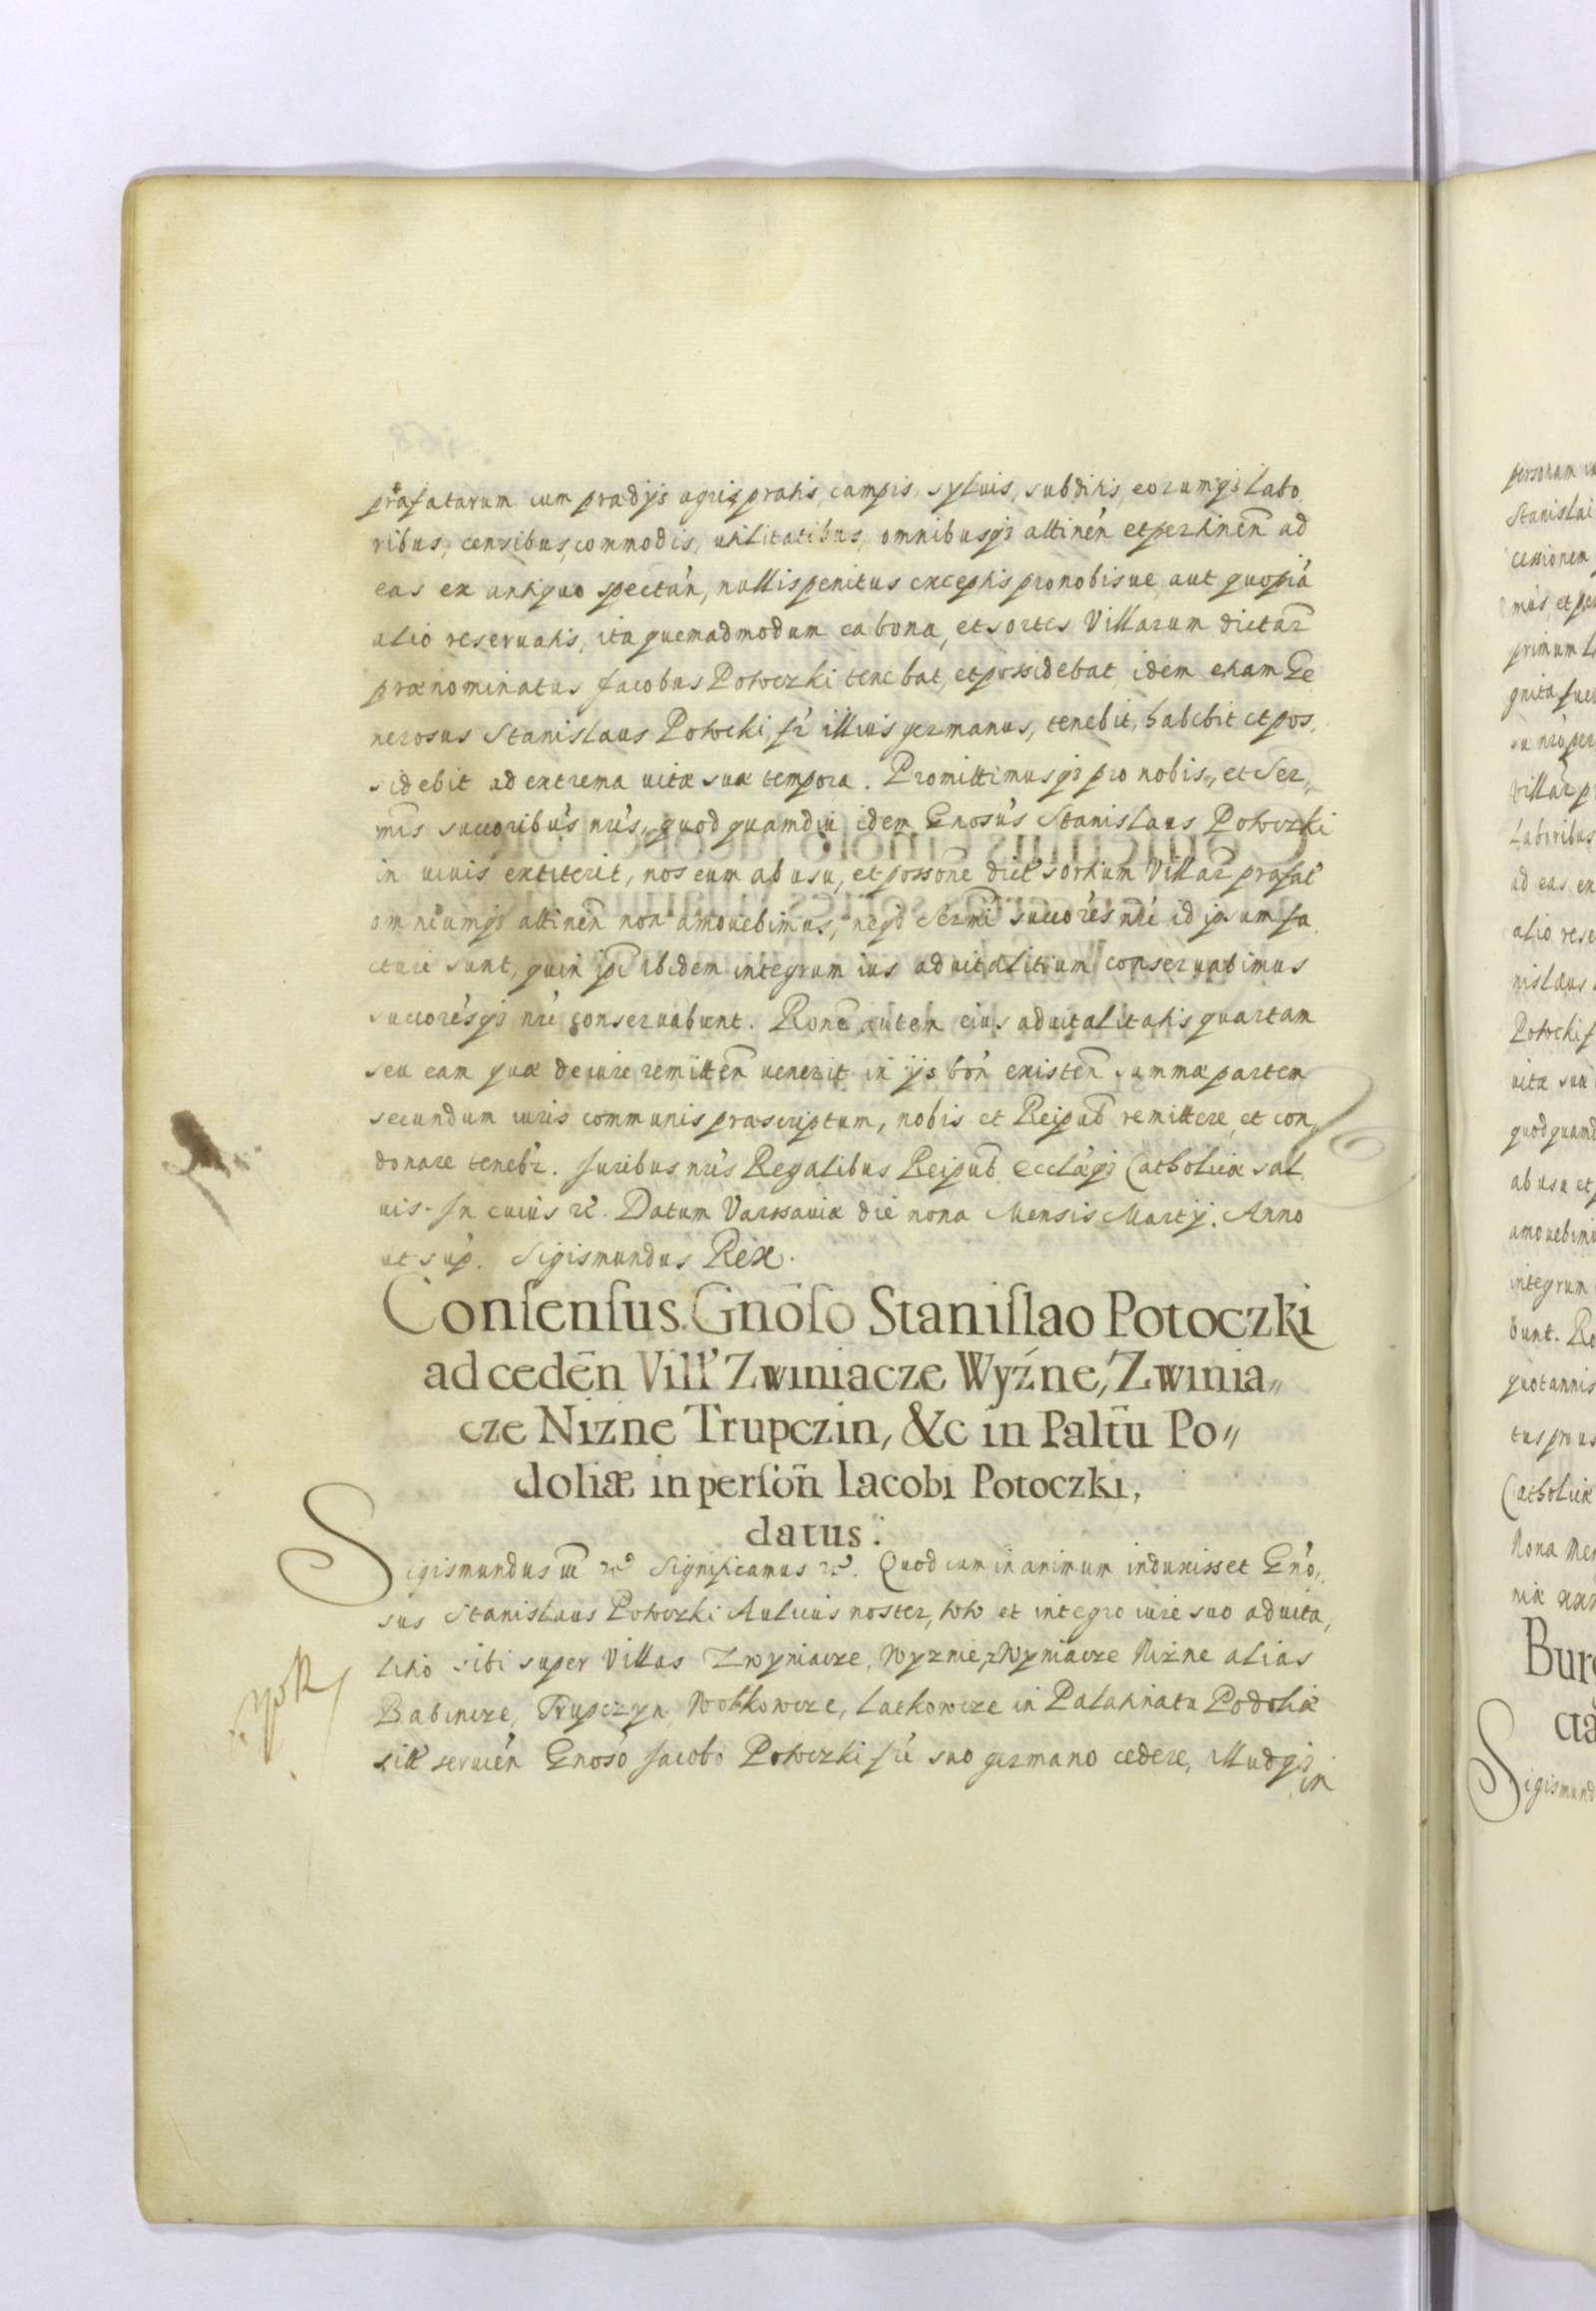 præfatarum cum prædijs agris, pratis, campis, syluis, subditis, eorumq3 labo,
ribus, censibus, commodis, utilitatibus, omnibusq3 attinen̄ et pertinen̄ ad
eas ex antiquo spectan̄, nullis penitus exceptis pro nobisue aut quopiā
alio reseruatis, ita quemadmodum ea bona, et sortes Villarum dictar̄
prænominatus Jacobus Potoczki tenebat, et possidebat, idem etiam Ge
nerosus Stanislaus Potocki, fr̄ illius germanus, tenebit, habebit et pos,
sidebit ad extrema uitæ suæ tempora. Promittimusq3 pro nobis, et Ser,,
mis successoribus nr̄is, quod quamdiu idem Gnosus Stanislaus Potoczki
in uiuis extiterit, nos eum ab usu, et possone dict' sortium Villar̄ præfat'
omniumq3 attinen̄ non amouebimus, neq3 Sermi succores nr̄i id ipsum fa,
cturi sunt, quin ipi ibidem integrum ius aduitalitium conseruabimus
succoresq3 nr̄i conseruabunt. Rone autem eius aduitalitatis quartam
seu eam quæ de iure remitten̄ uenerit in ijs bon̄ existen̄ summæ partem
secundum iuris communis præscriptum, nobis et Reipub̄ remittere, et con,,
donare tenebr̄. Juribus nr̄is Regalibus Reipub̄ Ecclæq3 Catholicæ sal,
uis. In cuius rē. Datum Varssauiæ die nona Mensis Martij. Anno
ut sup. Sigismundus Rex.
Conſenſus Gnōſo Staniſlao Potoczki
ad cedēn Vill' Zwiniacze Wyźne, Zwinia,,
cze Niżne Trupczin, &c in Paltū Po,,
doliæ in perſōn Iacobi Potoczki,
datus.
Sigismundus III rc̄ Significamus rc̄. Quod cum in animum induxisset Gnō,,
sus Stanislaus Potoczki Aulicus noster, toto et integro iure suo aduita,
litio sibi super Villas Zwyniacze, Wyznie, Zwyniacze Niżne alias
Babincze, Trupczyn, Wolkowcze, Latkowcze in Palatinatu Podoliæ
sitt' seruien̄ Gnoso Jacobo Potoczki fr̄i suo germano cedere, illudq3
in